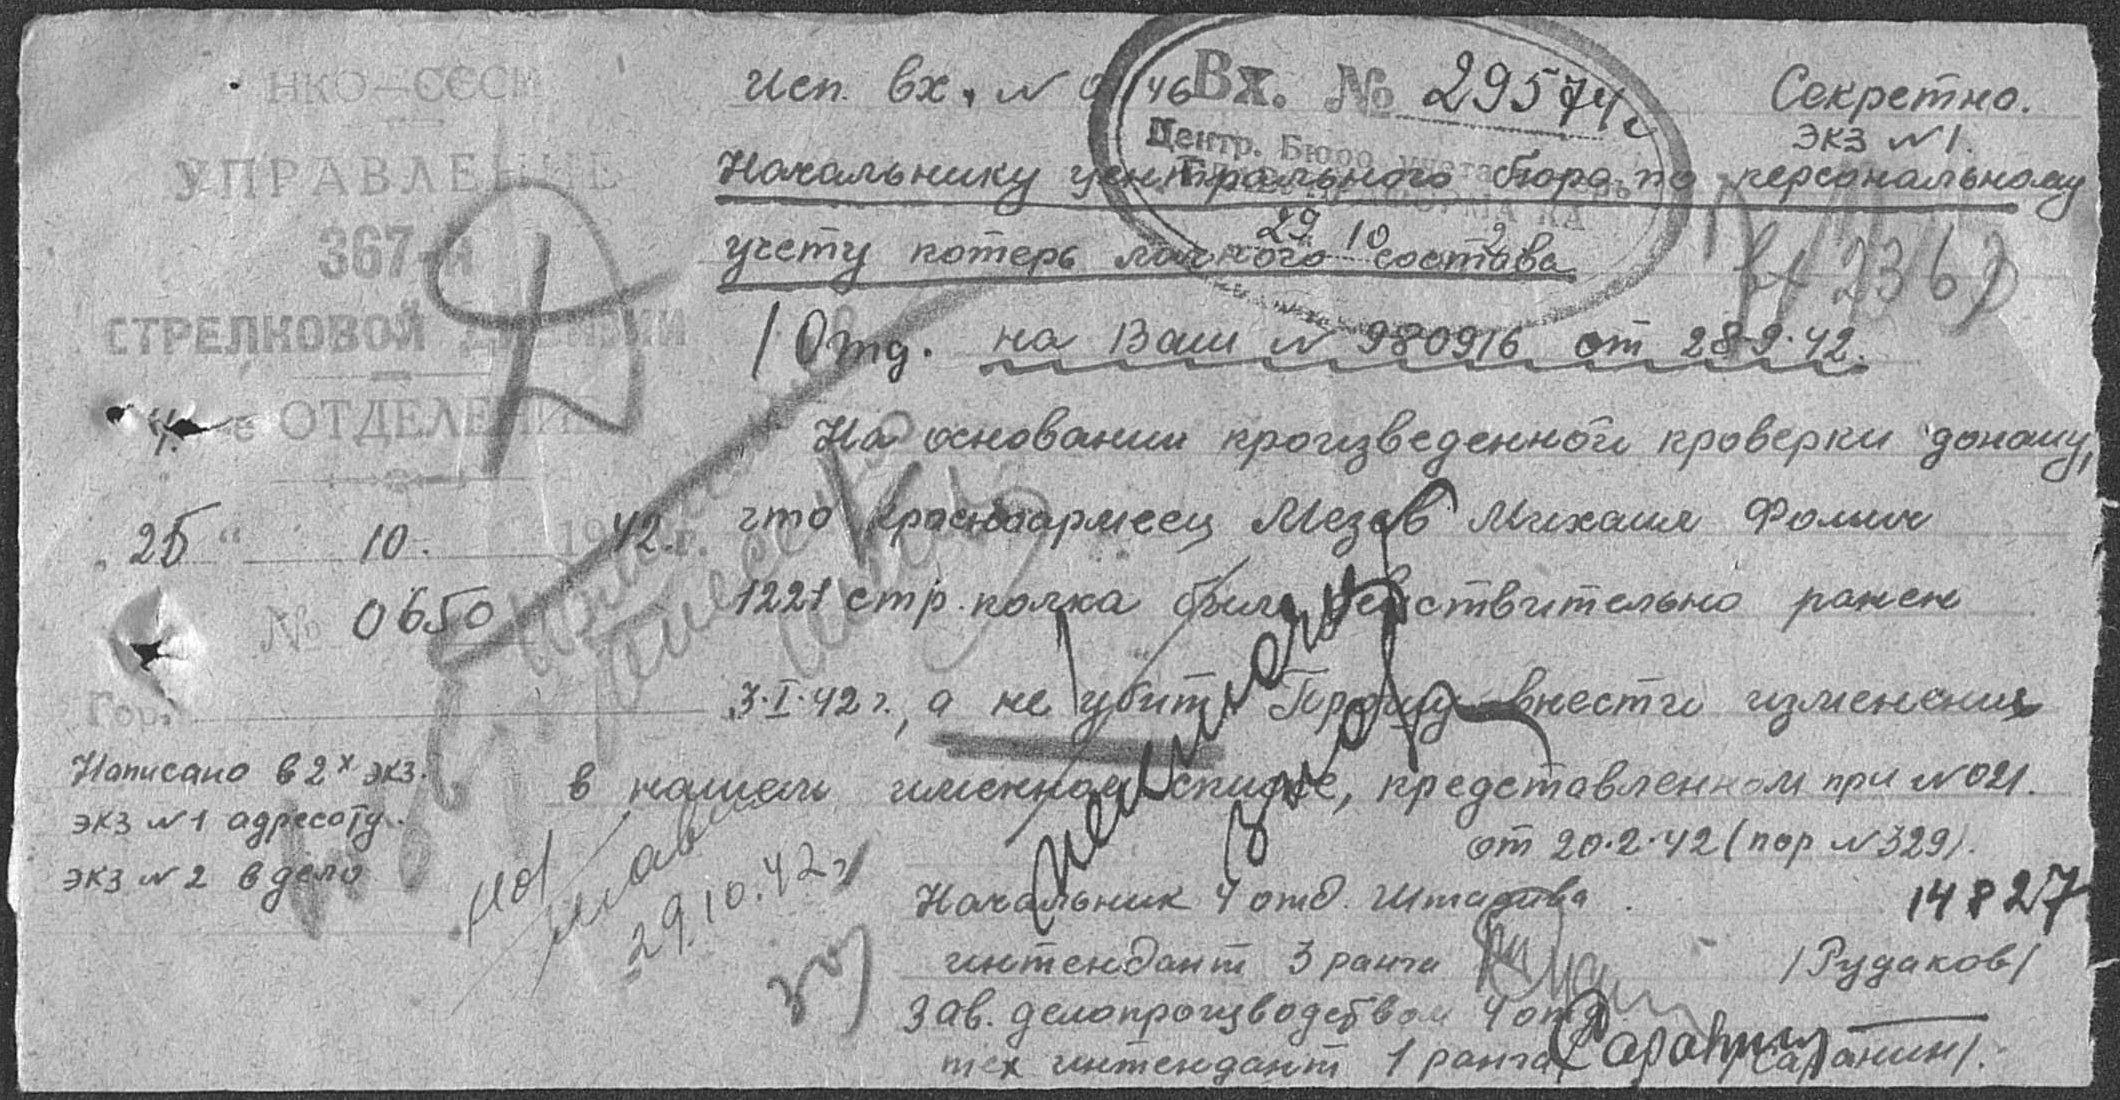 НКО-СССР
УПРАВЛЕНИЕ
367-й
СТРЕЛКОВОЙ ДИВИЗИИ
4-е ОТДЕЛЕНИЕ
„25“ 10. 1942 г.
№ 0650
Гор.
Написано в 2х экз.
экз №1 адресату.
экз №2 в дело
Исп. вх. №
Вх. № 29574
Центр. Бюро учета
29 10 2
Секретно.
экз №1.
Начальнику центрального бюро по персональному
учету потерь личного состава
1 Отд. на Ваш № 980916 от 28.9.42.
На основании произведенной проверки доношу,
что красноармеец Мезев Михаил Фомич
1221 стр. полка был действительно ранен
3.I.42 г., а не убит. Прошу внести изменения
в нашем именном списке, представленном при №021.
от 20.2.42 (пор №329).
Начальник 4 отд. Штадива
14827
интендант 3 ранга /Рудаков/
Зав. делопроизводством 4 отд
тех интендант 1 ранга /Саранин/.
29.10.42 г